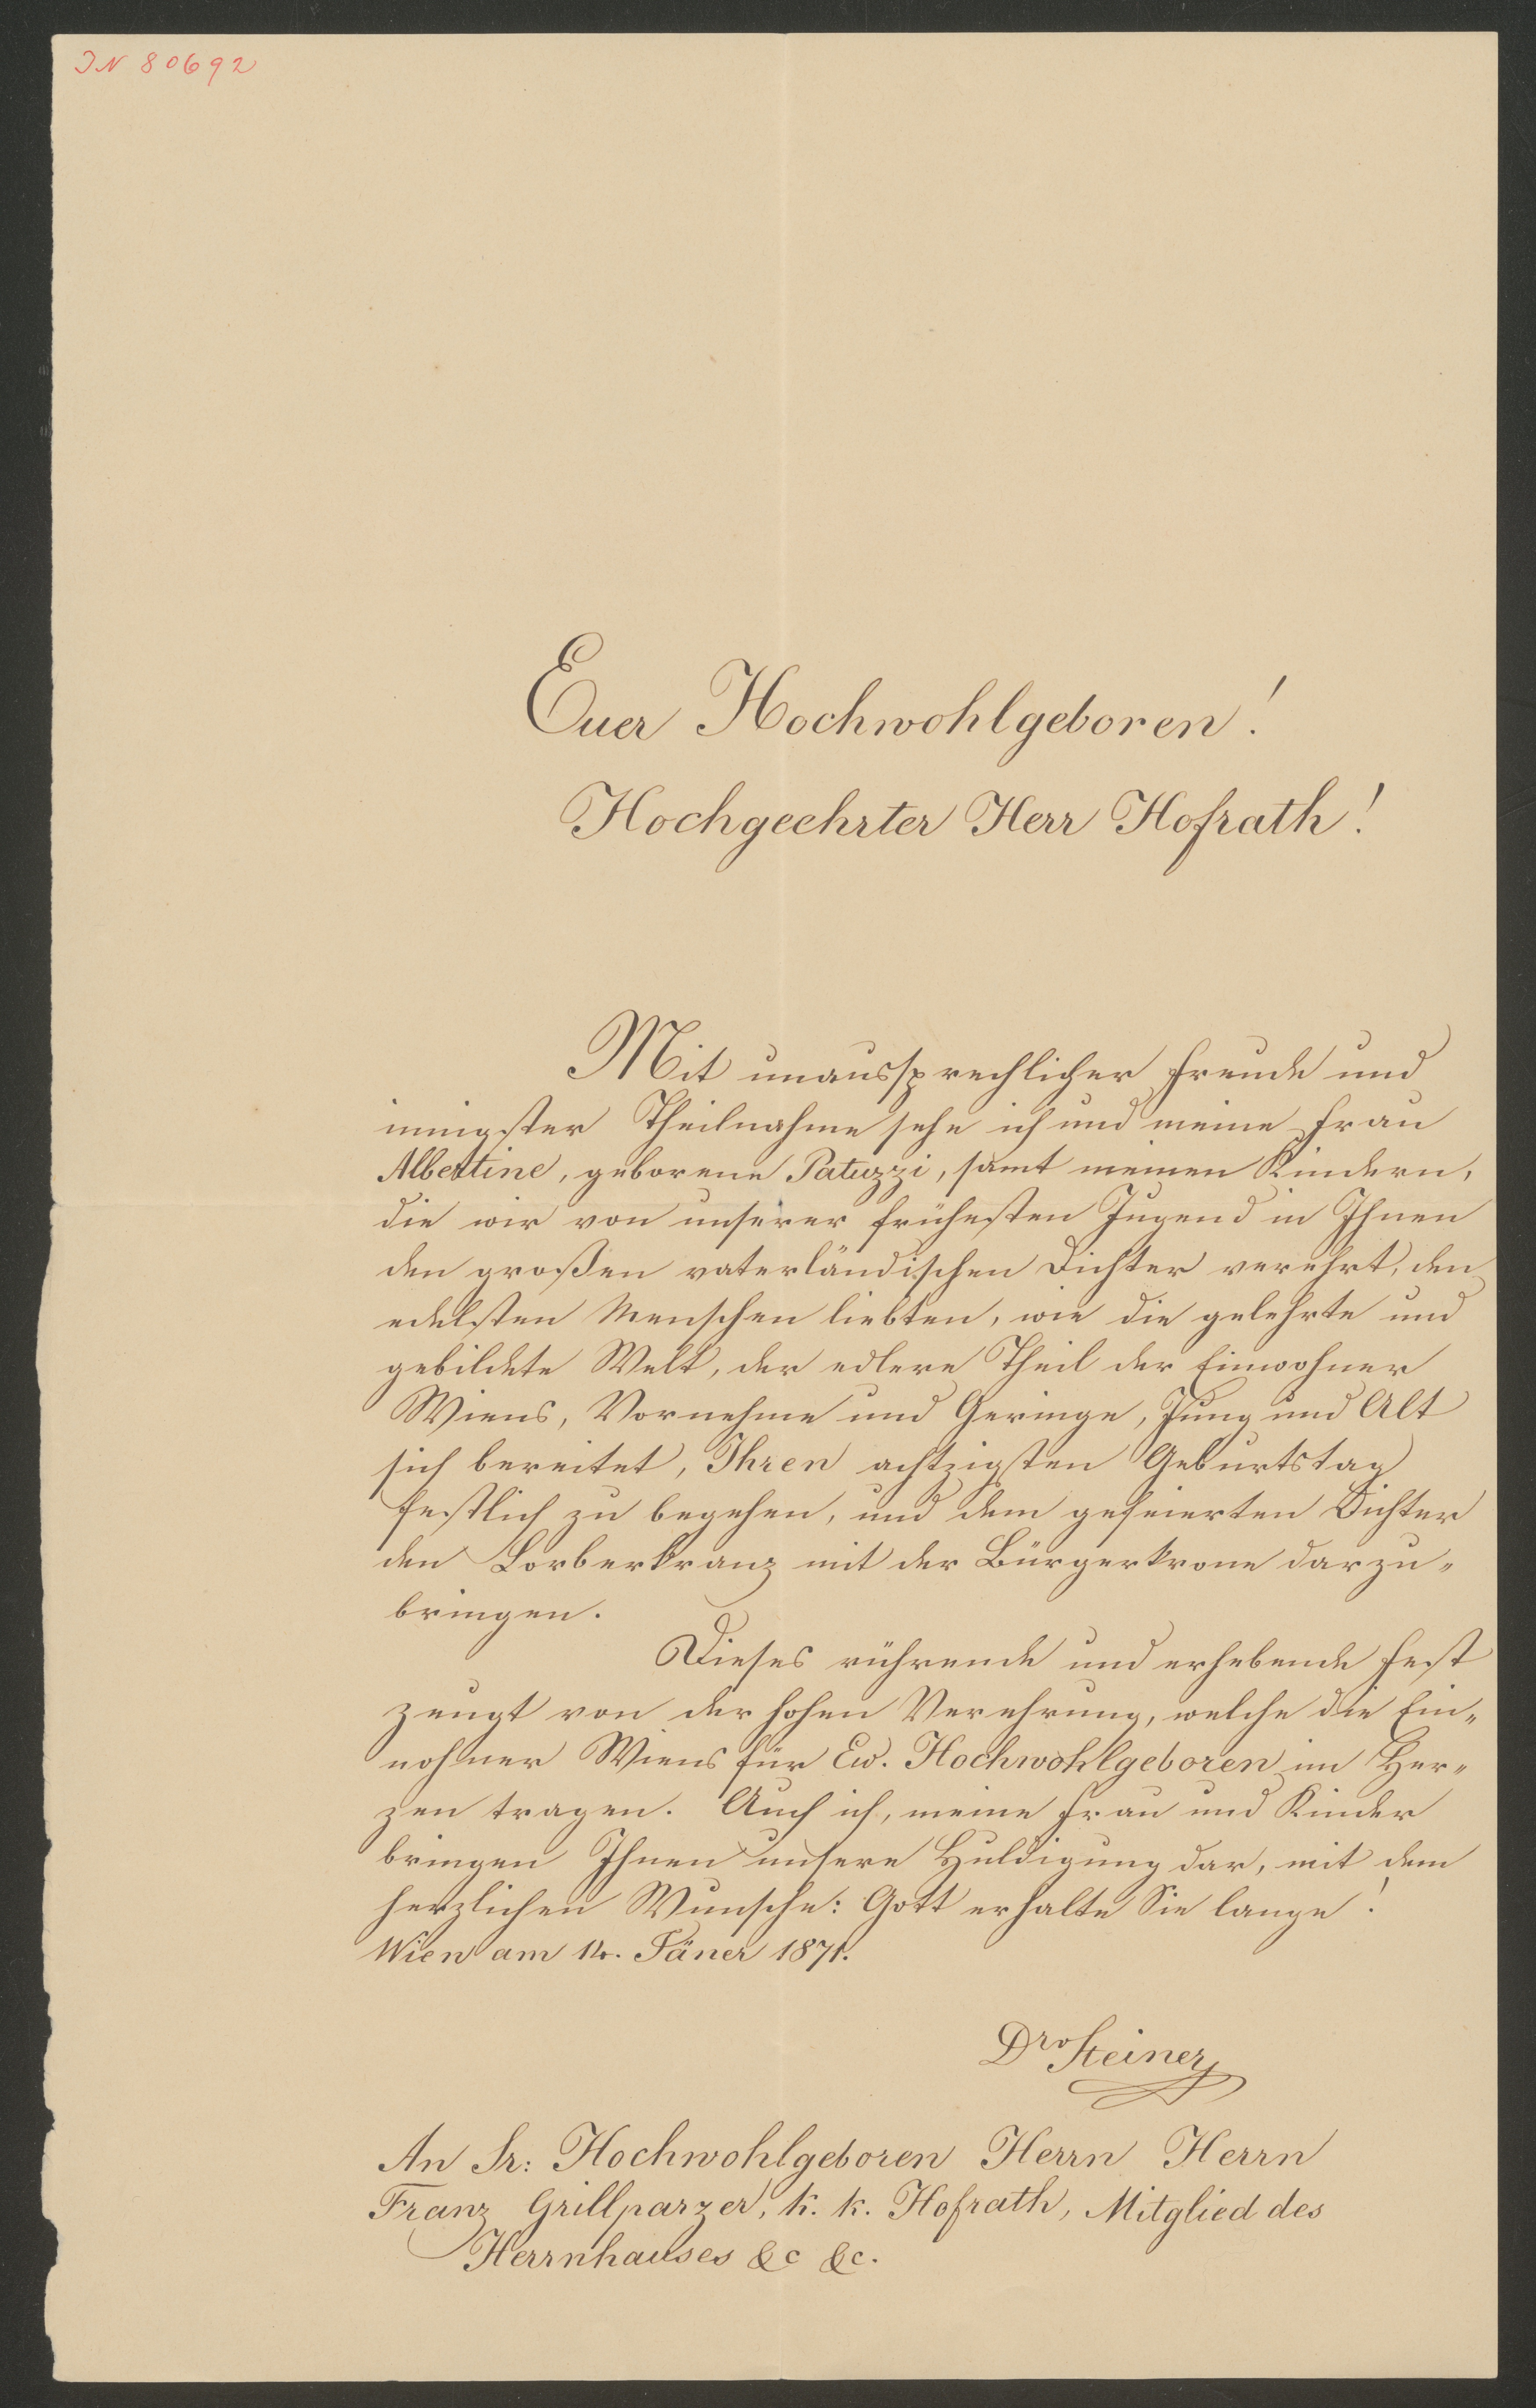 IN 80692
Euer Hochwohlgeboren!
Hochgeehrter Herr Hofrath!
Mit unaussprechlicher Freude und
innigster Theilnahme sehe ich und meine Frau
Albertine, geborene Patuzzi, samt meinen Kindern,
die wir von unserer frühesten Jugend in Ihnen
den großen vaterländischen Dichter verehrt, den
edelsten Menschen liebten, wie die gelehrte und
gebildete Welt, der edlere Theil der Einwohner
Wiens, Vornehme und Geringe, Jung und Alt
sich bereitet, Ihren achtzigsten Geburtstag
festlich zu begehen, und dem gefeierten Dichter
den Lorberkranz mit der Bürgerkrone darzu-
bringen.
Dieses rührende und erhebende Fest
zeugt von der hohen Verehrung, welche die Ein-
wohner Wiens für Ew. Hochwohlgeboren im Her-
zen tragen. Auch ich, meine Frau und Kinder
bringen Ihnen unsere Huldigung dar, mit dem
herzlichen Wunsche: Gott erhalte Sie lange!
Wien am 14. Jäner 1871.
Dr Steiner
An Sr: Hochwohlgeboren Herrn Herrn
Franz Grillparzer, k. k. Hofrath, Mitglied des
Herrnhauses &c &c.